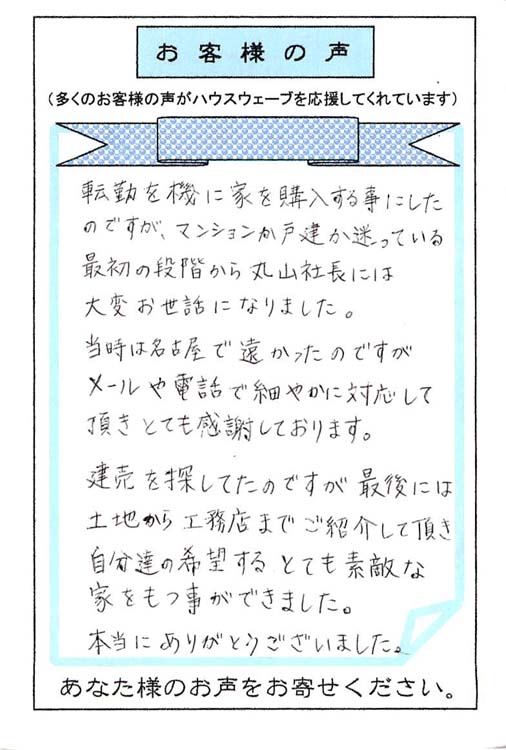 お客様の声
（多くのお客様の声がハウスウェーブを応援してくれています）
転勤を機に家を購入する事にした
のですが、マンションか戸建か迷っている
最初の段階から丸山社長には
大変お世話になりました。
当時は名古屋で遠かったのですが
メールや電話で細やかに対応して
頂きとても感謝しております。
建売を探してたのですが最後には
土地から工務店までご紹介して頂き
自分達の希望するとても素敵な
家をもつ事ができました。
本当にありがとうございました。
あなた様のお声をお寄せください。